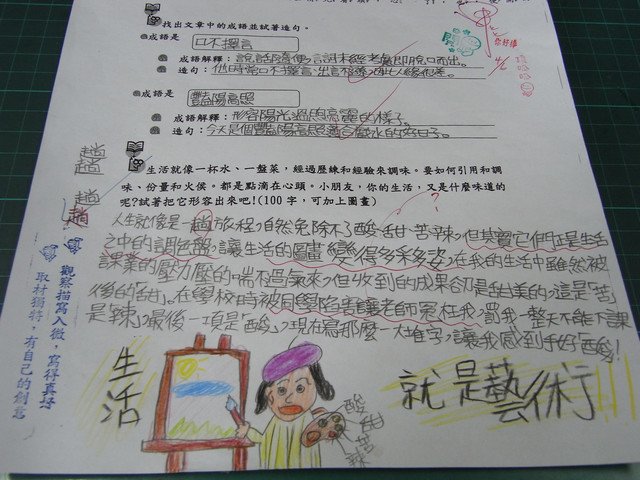 找出文章中的成語並試著造句。
成語是 口不擇言
成語解釋：說話隨便，言詞未經考慮即脫口而出。
造句：他時常口不擇言，出言不遜，所以人緣很差。
你好棒
成語是 豔陽高照
成語解釋：形容陽光溫的高麗的樣子。
造句：今天是個豔陽高照適合戲水的好日子。
生活就像一杯水、一盤菜，經過歷練和經驗來調味。要如何引用和調
味、份量和火侯。都是點滴在心頭。小朋友，你的生活，又是什麼味道的
呢?試著把它形容出來吧!(100 字，可加上圖畫)
人生就像是一趟旅程，自然免除不了酸、甜、苦、辣，但其實它們正是生活
之中的調色盤，讓生活的圖畫變得多采多姿。在我的生活中雖然被
課業的壓力壓的喘不過氣來，但收到的成果卻是甜美的，這是「苦」
後的「甜」。在學校時被同學陷害讓老師冤枉我，罰我一整天不能下課
是「辣」，最後一項是「酸」，現在寫那麼一大堆字，讓我感到手好酸!
趟
趟
趟
趟
觀察描寫入微，寫得真好
取材獨特，有自己的創意
生活
酸甜苦辣
就是藝術